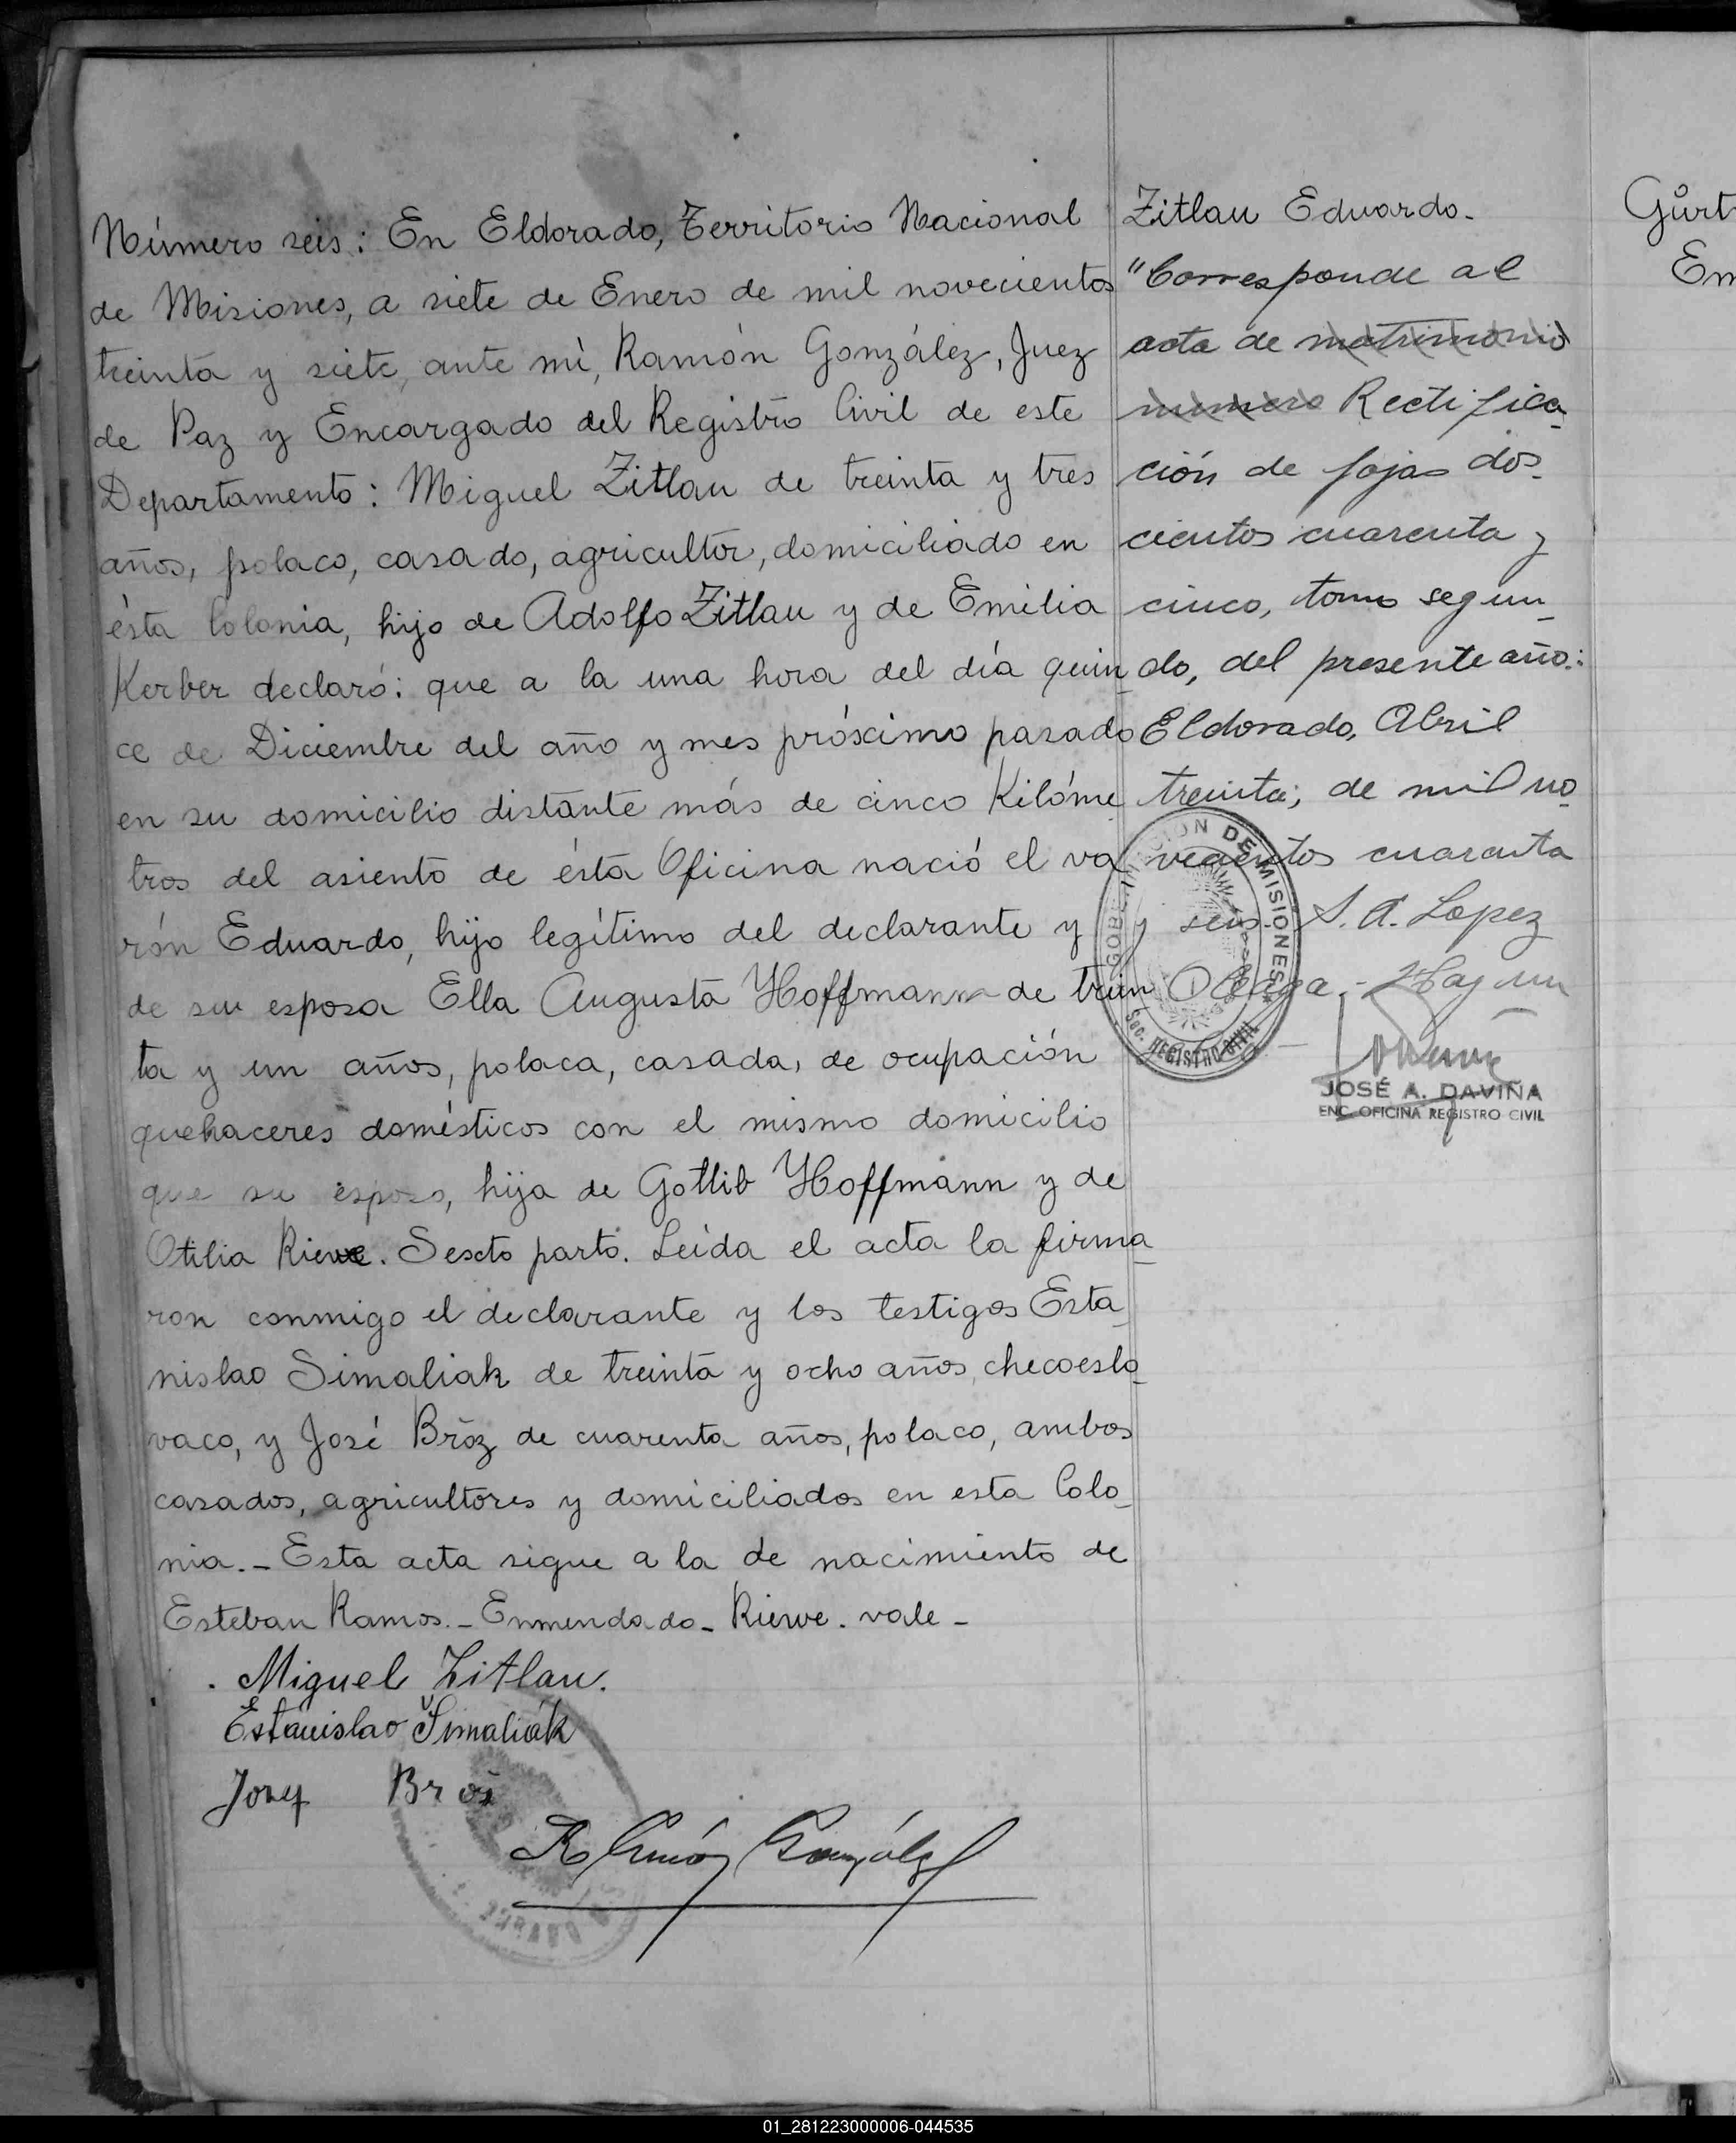 Número seis: En Eldorado, Territorio Nacional
de Misiones, a siete de Enero de mil novecientos
treinta y siete, ante mí, Ramón González, Juez
de Paz y Encargado del Registro Civil de este
Departamento: Miguel Zitlau de treinta y tres
años, polaco, casado, agricultor, domiciliado en
ésta Colonia, hijo de Adolfo Zitlau y de Emilia
Kerber declaró: que a la una hora del día quin
ce de Diciembre del año y mes próximo pasado
en su domicilio distante más de cinco Kilóme
tros del asiento de ésta Oficina nació el va
rón Eduardo, hijo legítimo del declarante y
de su esposa Ella Augusta Hoffmann de trein
ta y un años, polaca, casada, de ocupación
quehaceres domésticos con el mismo domicilio
que su esposo, hija de Gotlib Hoffmann y de
Otilia Riewe. Sexto parto. Leída el acta la firma_
ron conmigo el declarante y los testigos Esta_
nislao Simaliak de treinta y ocho años, checoeslo_
vaco, y José Bröz de cuarenta años, polaco, ambos
casados, agricultores y domiciliados en esta Colo_
nia._ Esta acta sigue a la de nacimiento de
Esteban Ramos._ Enmendado_ Riewe. vale_
Miguel Zitlau.
Estanislao Šimaliák
Ramón González
Zitlau Eduardo.
"Corresponde al
acta de matrimonio
numero Rectifica_
ción de fojas dos_
cientos cuarenta y
cinco, tomo segun_
do, del presente año.:
Eldorado, Abril
treinta; de mil no_
vecientos cuarenta
y seis. S. A. Lopez
Hay un
GOBERNACION DE MISIONES
Sec. REGISTRO CIVIL
JOSÉ A. DAVIÑA
ENC. OFICINA REGISTRO CIVIL
Gürt
Em
01_281223000006-044535